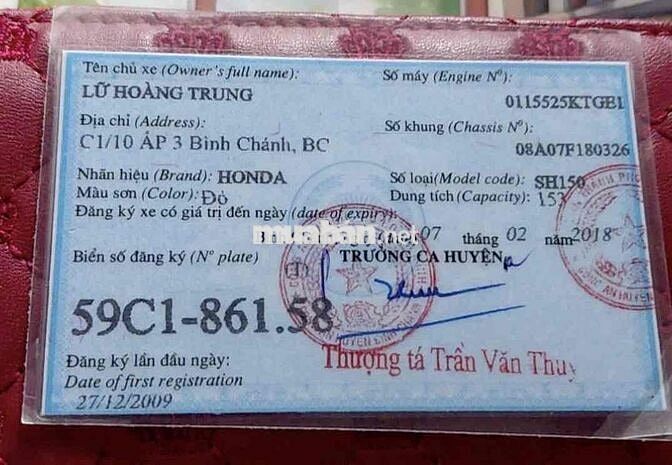 Tên chủ xe (Owner's full name):
LỮ HOÀNG TRUNG
Số máy (Engine Nº):
0115525KTGB1
Địa chỉ (Address):
C1/10 ẤP 3 Bình Chánh, BC
Số khung (Chassis Nº):
08A07F180326
Nhãn hiệu (Brand): HONDA
Số loại(Model code): SH150
Màu sơn (Color): Đỏ
Dung tích (Capacity): 153
Đăng ký xe có giá trị đến ngày (date of expiry):
07 tháng 02 năm 2018
muaban.net
Biển số đăng ký (Nº plate)
(1)
TRƯỞNG CA HUYỆN
59C1-861.58
Thượng tá Trần Văn Thuy
Đăng ký lần đầu ngày:
Date of first registration
27/12/2009